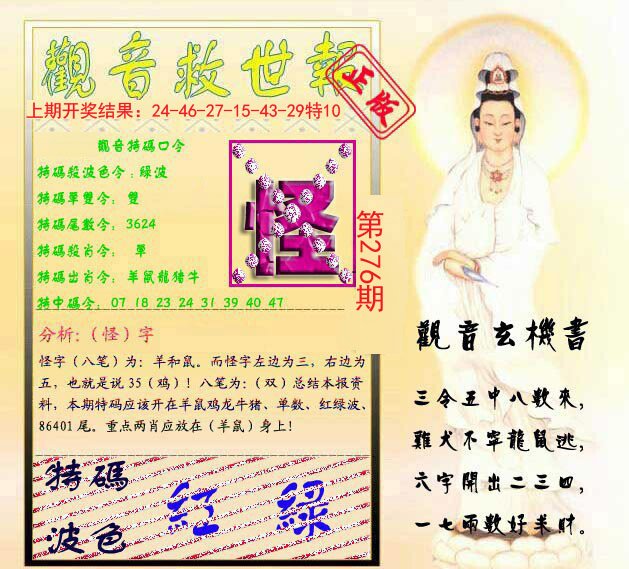 觀音救世報
正版
上期开奖结果：24-46-27-15-43-29特10
觀音特碼口令
特碼殺波色令：綠波
特碼單雙令： 雙
特碼尾數令： 3624
特碼殺肖令： 單
特碼出肖令： 羊鼠龍猪牛
特中碼令： 07 18 23 24 31 39 40 47
怪
第276期
分析：（怪）字
怪字（八笔）为：羊和鼠。而怪字左边为三，右边为
五，也就是说 35（鸡）！八笔为：（双）总结本报资
料，本期特码应该开在羊鼠鸡龙牛猪、单数、红绿波、
86401 尾。重点两肖应放在（羊鼠）身上！
特碼
波色
紅 綠
觀音玄機書
三令五申八數來，
雞犬不寧龍鼠逃，
六字開出二三四，
一七兩數好羊財。